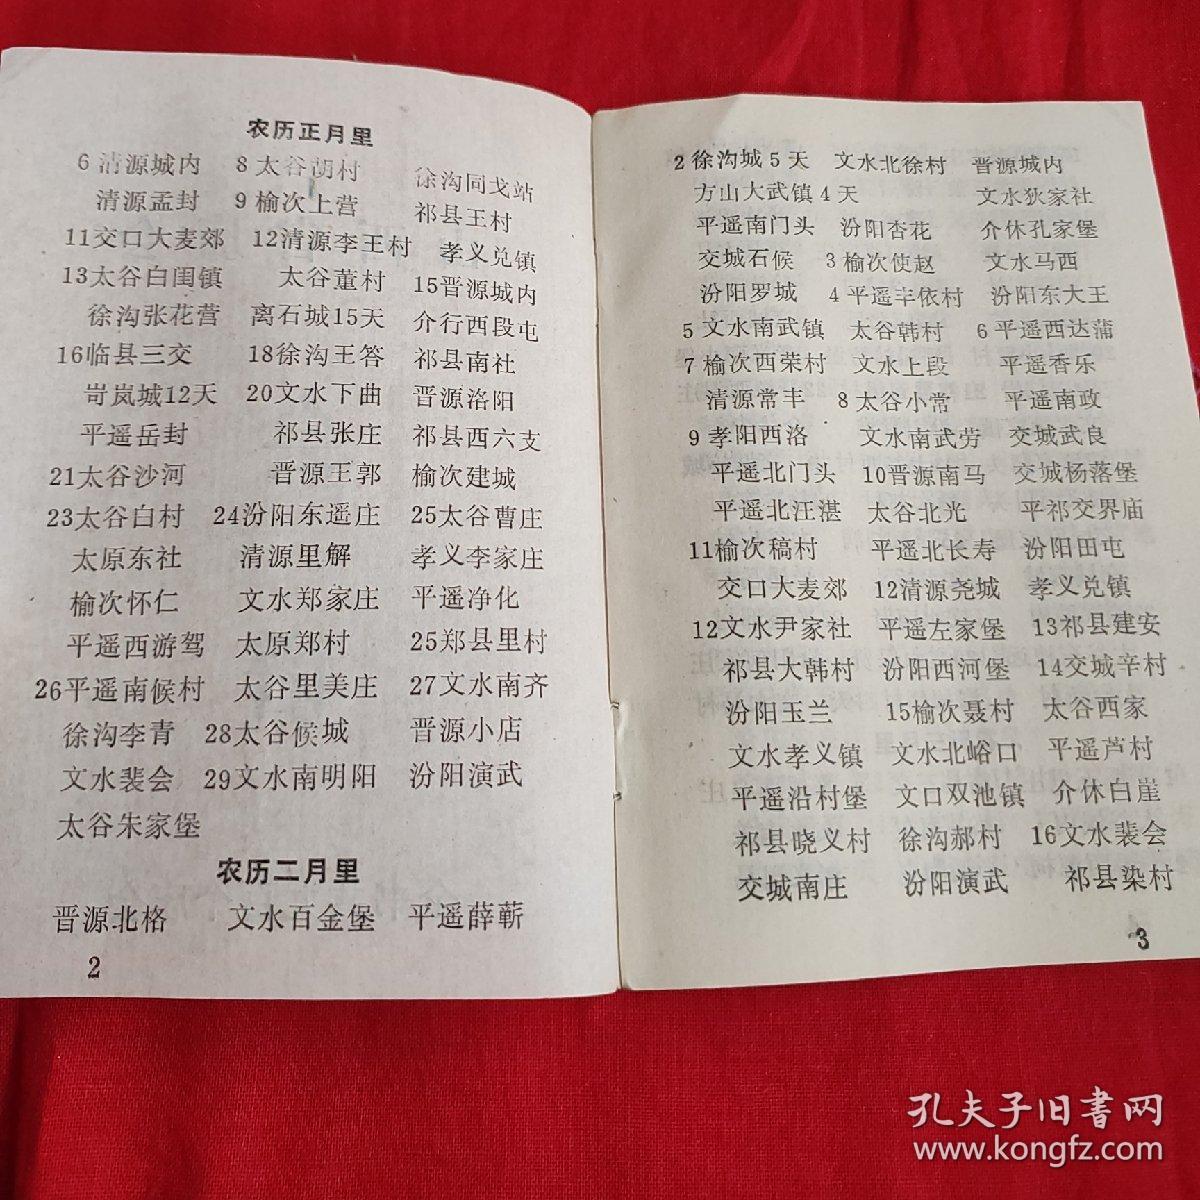 农历正月里
6清源城内 8太谷胡村 徐沟同戈站
清源孟封 9榆次上营 祁县王村
11交口大麦郊 12清源李王村 孝义兑镇
13太谷白闺镇 太谷董村 15晋源城内
徐沟张花营 离石城15天 介行西段屯
16临县三交 18徐沟王答 祁县南社
岢岚城12天 20文水下曲 晋源洛阳
平遥岳封 祁县张庄 祁县西六支
21太谷沙河 晋源王郭 榆次建城
23太谷白村 24汾阳东遥庄 25太谷曹庄
太原东社 清源里解 孝义李家庄
榆次怀仁 文水郑家庄 平遥净化
平遥西游驾 太原郑村 25郑县里村
26平遥南候村 太谷里美庄 27文水南齐
徐沟李青 28太谷候城 晋源小店
文水裴会 29文水南明阳 汾阳演武
太谷朱家堡
农历二月里
晋源北格 文水百金堡 平遥薛蕲
2
2徐沟城5天 文水北徐村 晋源城内
方山大武镇4天 文水狄家社
平遥南门头 汾阳杏花 介休孔家堡
交城石候 3榆次使赵 文水马西
汾阳罗城 4平遥丰依村 汾阳东大王
5文水南武镇 太谷韩村 6平遥西达蒲
7榆次西荣村 文水上段 平遥香乐
清源常丰 8太谷小常 平遥南政
9孝阳西洛 文水南武劳 交城武良
平遥北门头 10晋源南马 交城杨落堡
平遥北汪湛 太谷北光 平祁交界庙
11榆次稿村 平遥北长寿 汾阳田屯
交口大麦郊 12清源尧城 孝义兑镇
12文水尹家社 平遥左家堡 13祁县建安
祁县大韩村 汾阳西河堡 14交城辛村
汾阳玉兰 15榆次聂村 太谷西家
文水孝义镇 文水北峪口 平遥芦村
平遥沿村堡 文口双池镇 介休白崖
祁县晓义村 徐沟郝村 16文水裴会
交城南庄 汾阳演武 祁县染村
3
孔夫子旧书网
www.kongfz.com